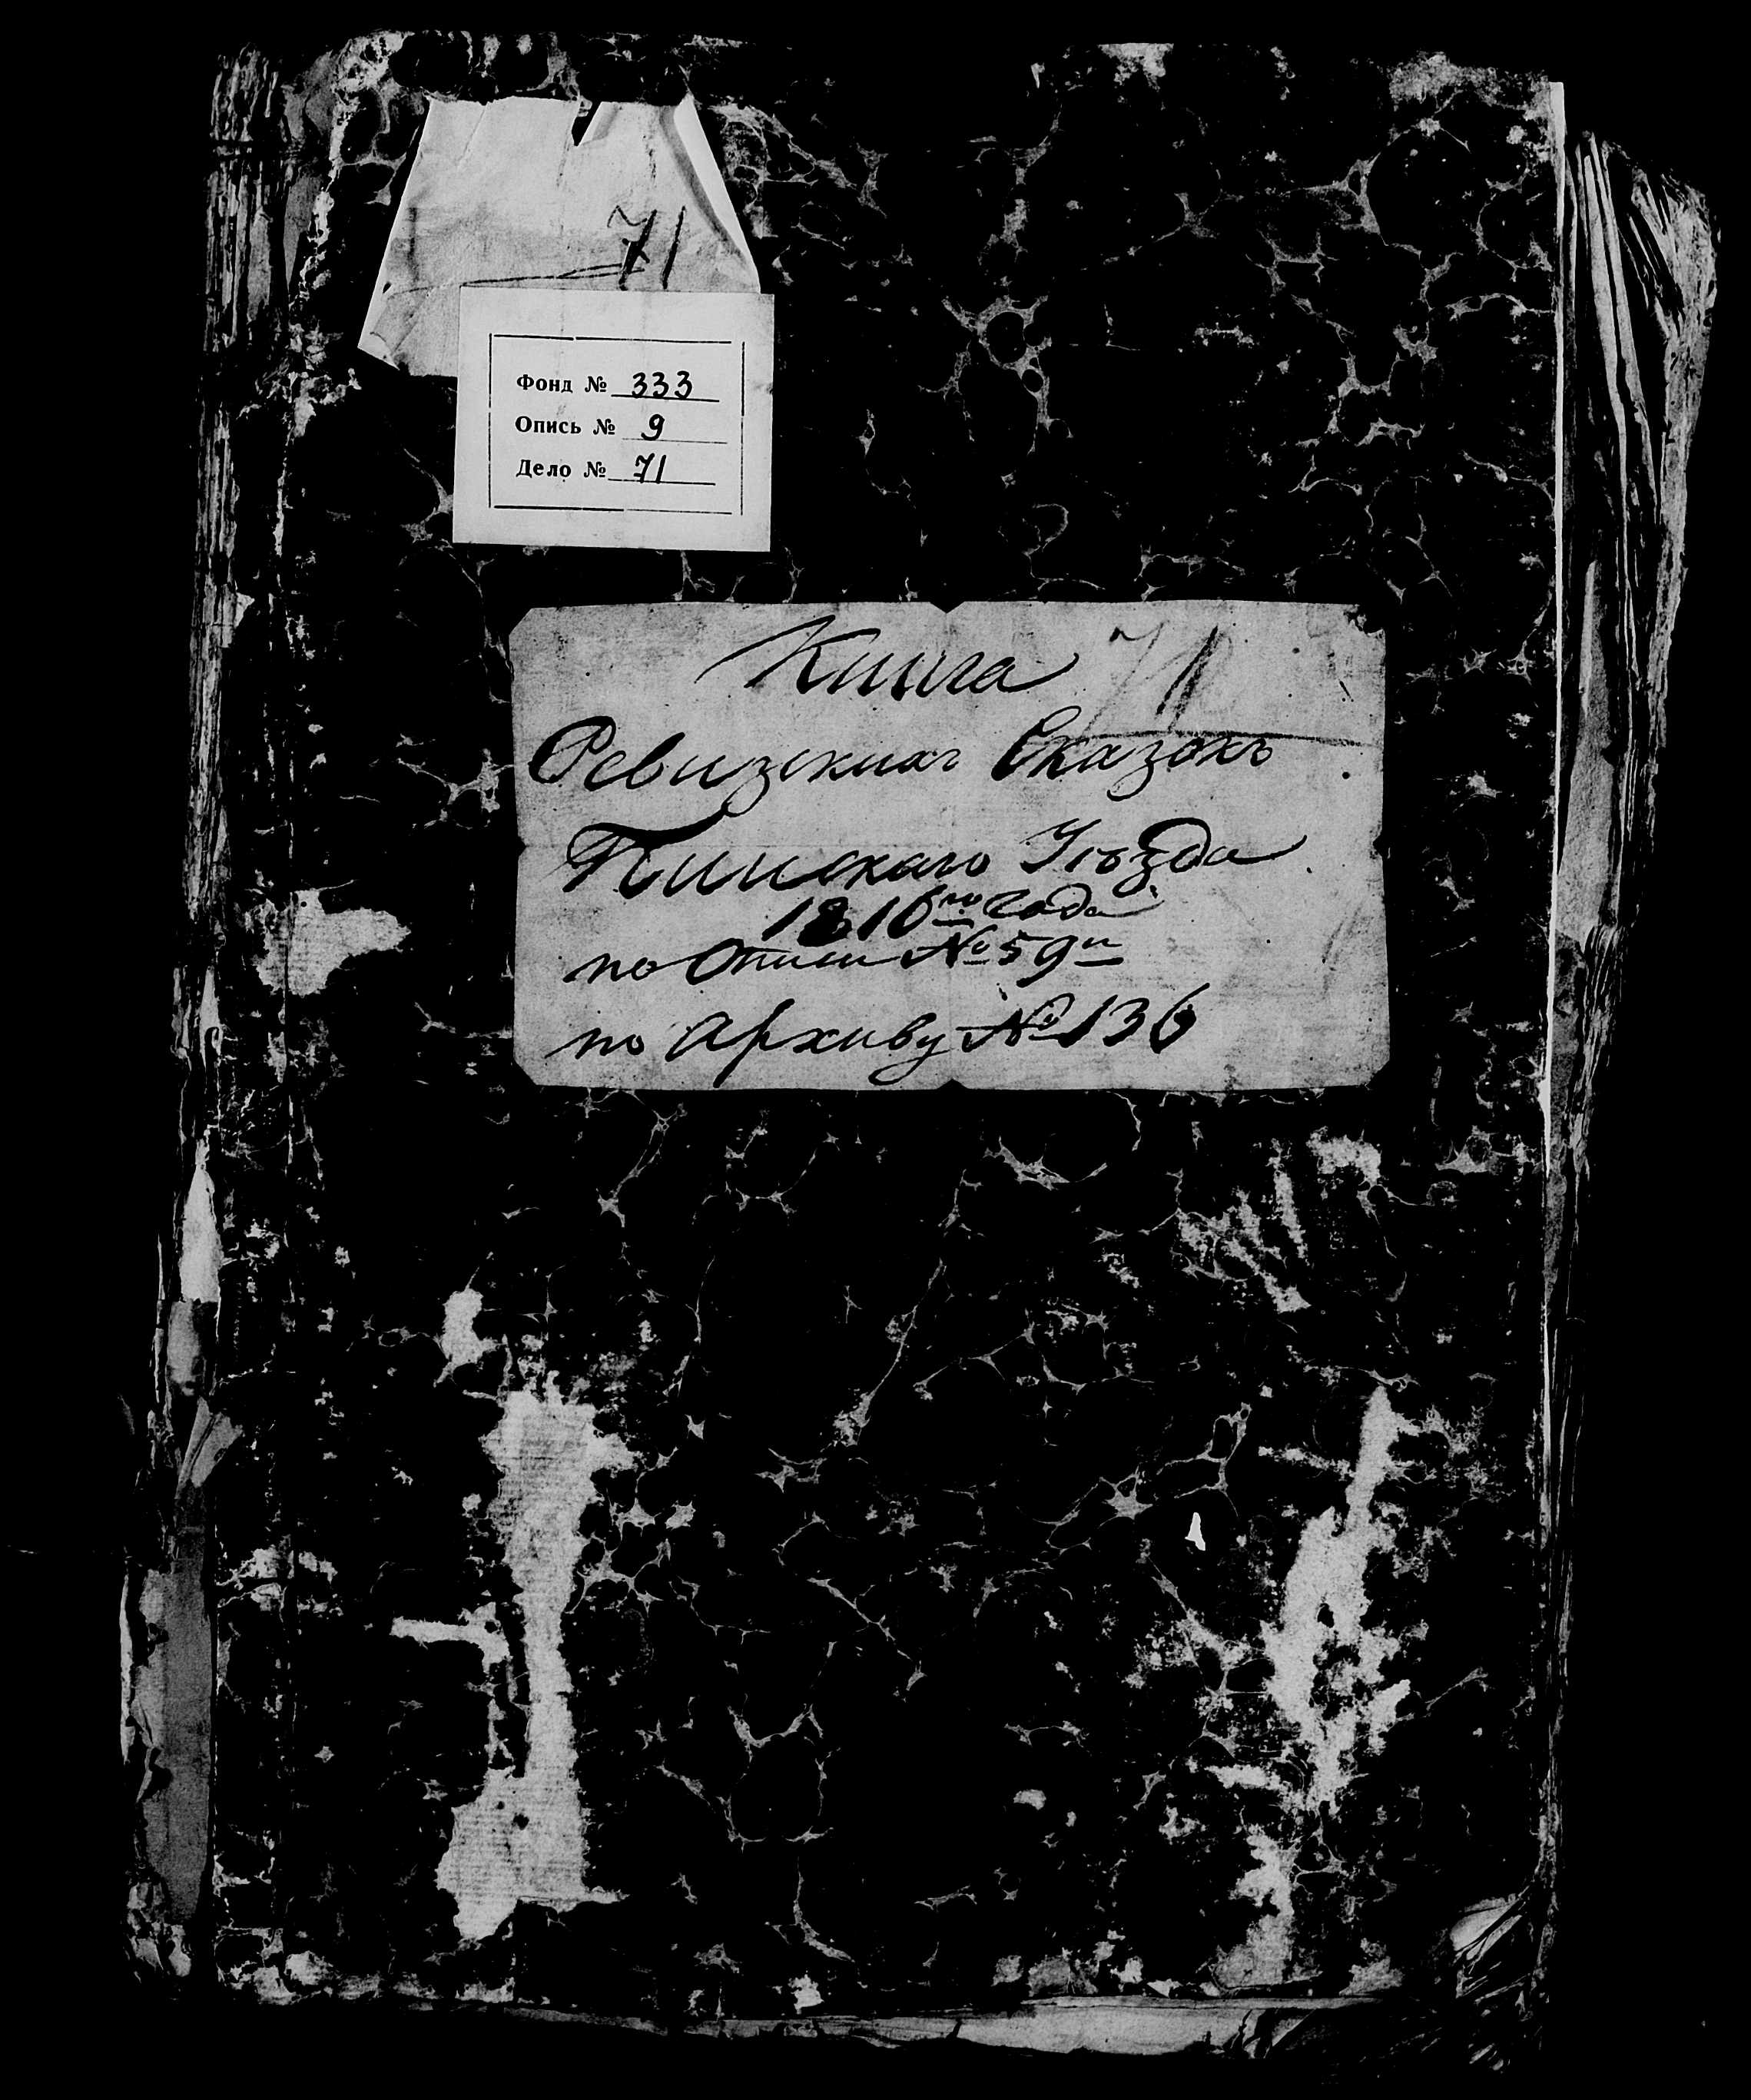 71
Фонд № 333
Опись № 9
Дело № 71
71
Книга
Ревизских Сказокъ
Пинскаго Уѣзда
1816го года
по Описи № 59й
по Архиву № 136